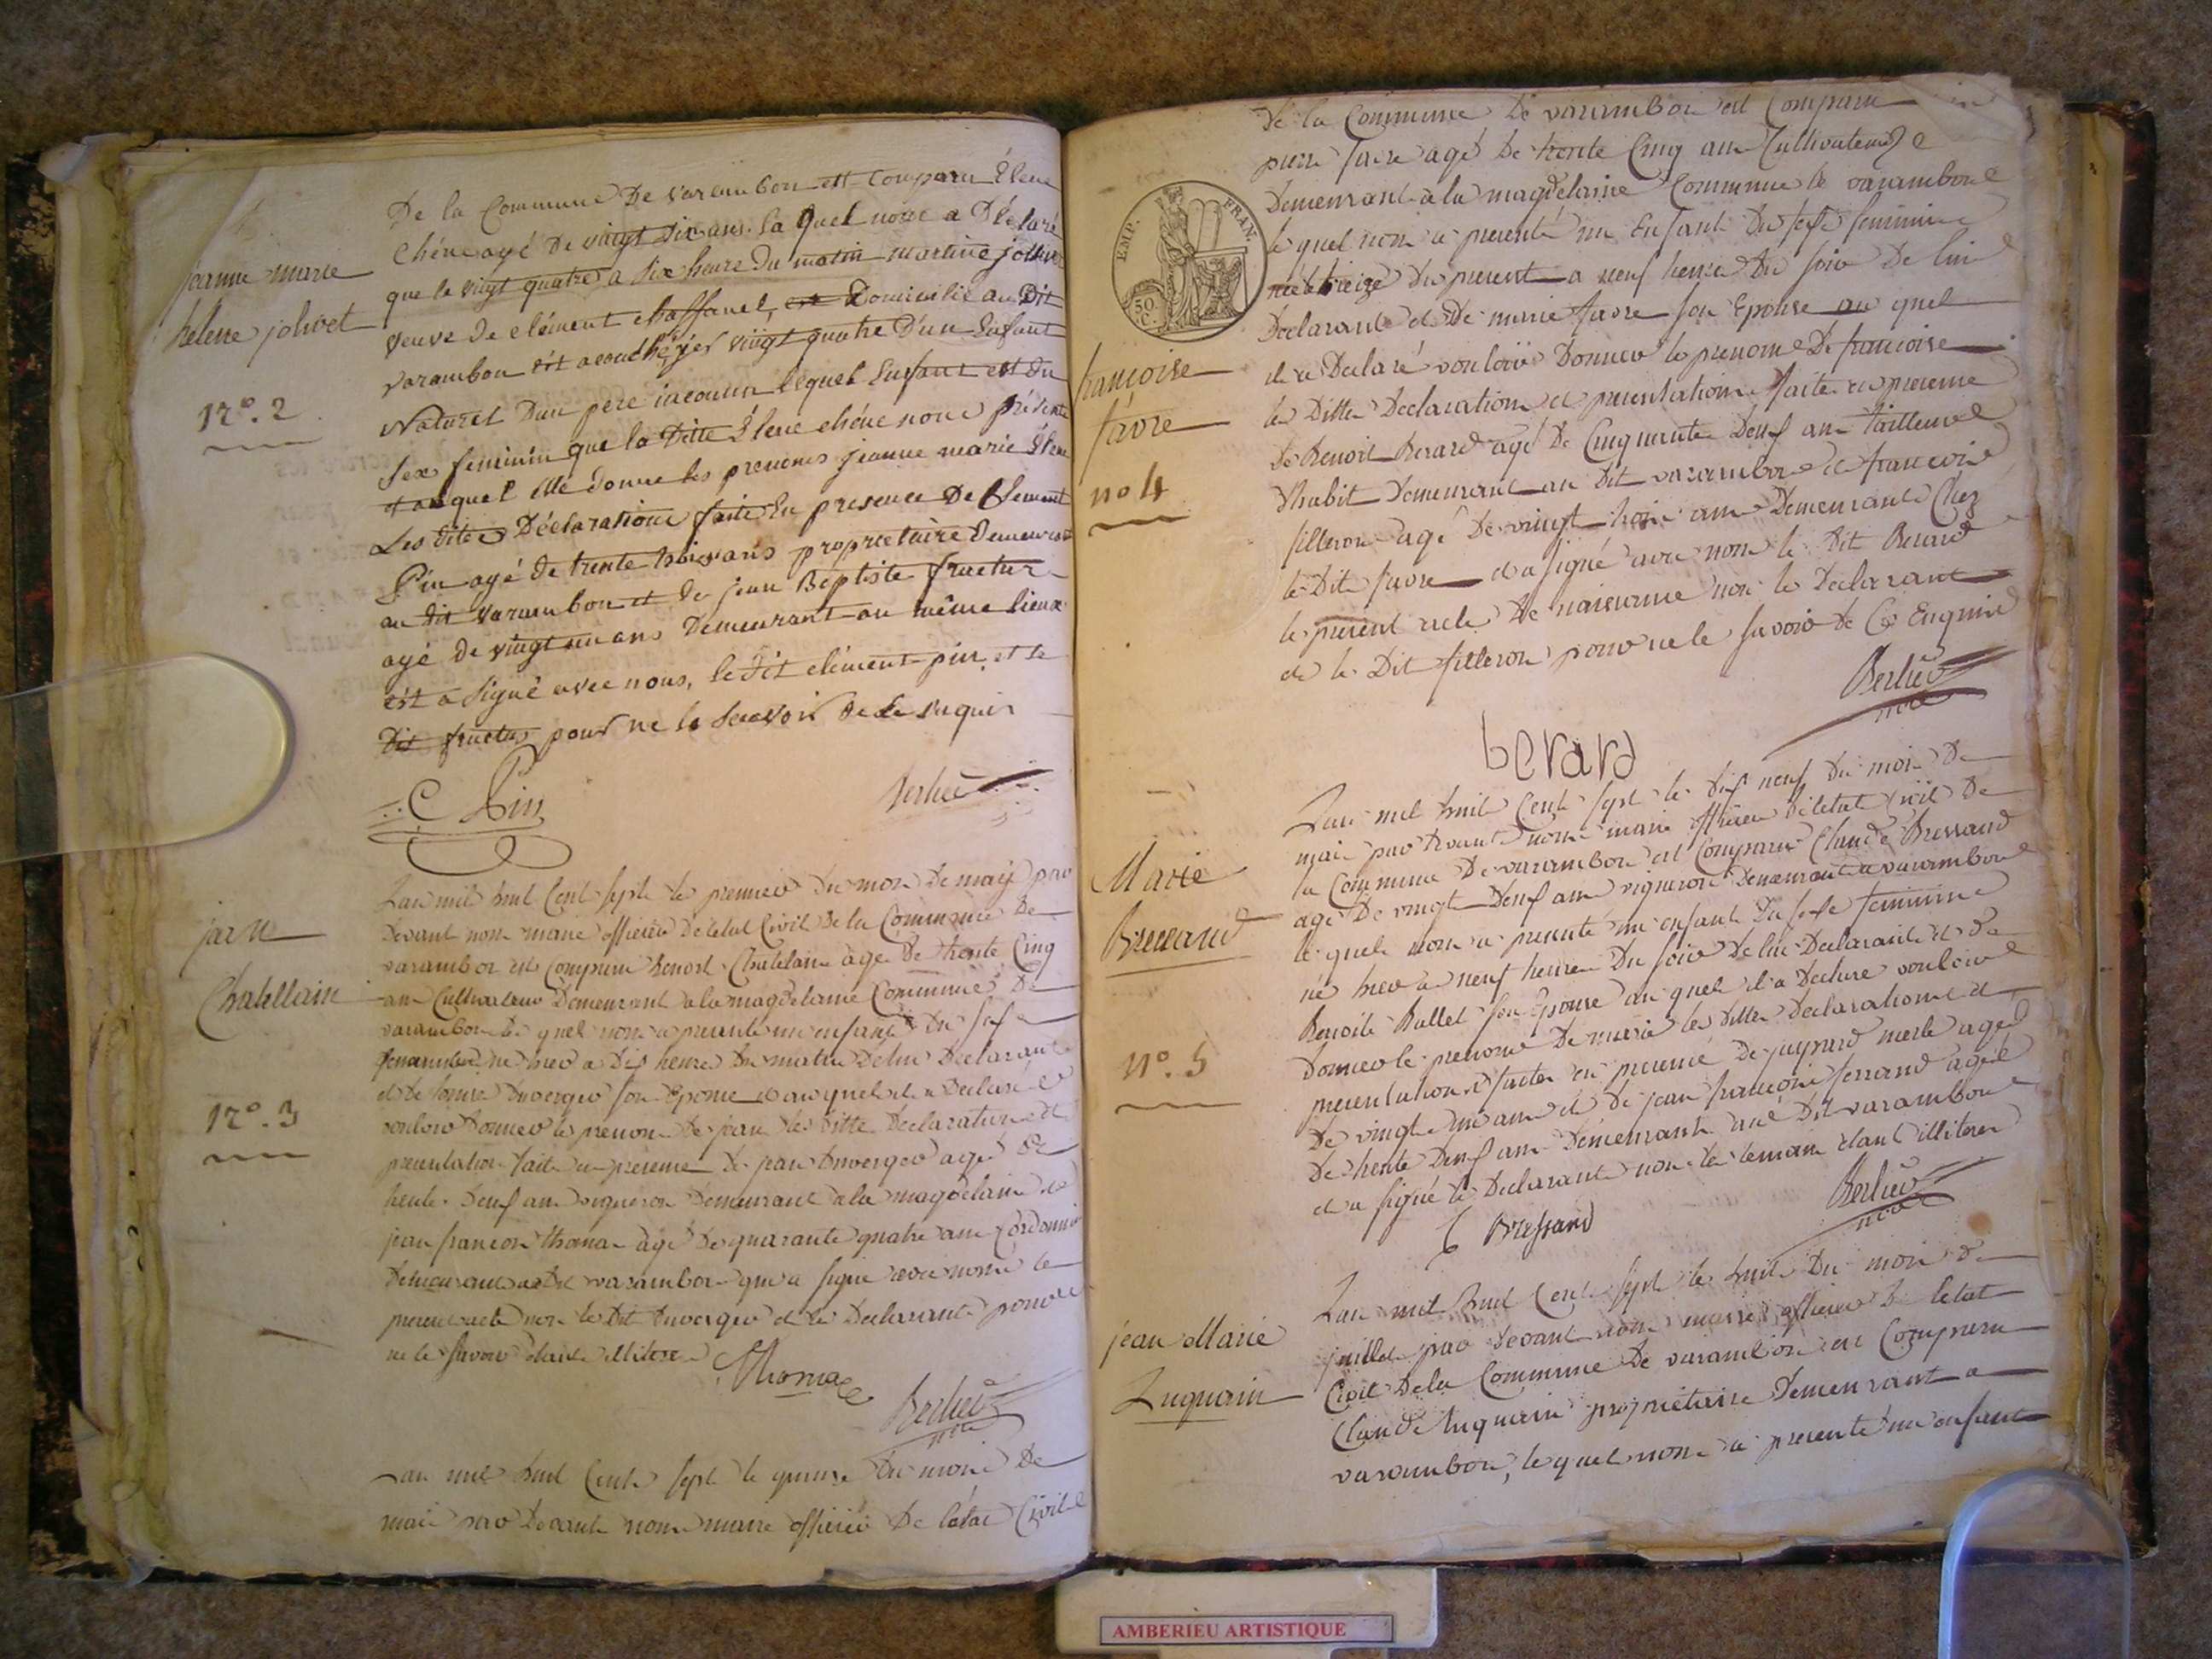 jeanne marie
helene jolivet
n°. 2
De la Commune De varambon est Comparu Élene
Chéne agé De vingt Dix ans. la quel nous a Déclaré
que le vingt quatre a Six heure Du matin martine jolivet
veuve de clément chaffanel, Domiciliée au Dit
varambon est acouchée yer vingt quatre D'un Enfant
Naturel D'un père inconnu lequel Enfant est du
Sex feminin que la Ditte Élene chéne nous présente
et auquel elle donne les prenoms jeanne marie Élene
Les dites Déclarations faite En presence De Clement
Pin agé de trente trois ans propriétaire Demeurant
au dit varambon et de jean Baptiste fructus
agé de vingt un ans Demeurant au même lieux
est a Signé avec nous, le dit clément pin, et le
Dit fructus pour ne le Scavoir de ce Enquis
C Pin
Berlie
jean
Chatellain
n°. 3
Lan mil huit Cent sept le premier du mois De may par
Devant nous maire officier De letat Civil De la Commune De
varambon est Comparu Benoit Chatelain agé De trente Cinq
ans Cultivateur Demeurant a la magdelaine Commune De
varambon le quel nous a presenté un enfant Du sexe
ne hier a Dix heure Du matin De lui Declarant
et De Duverger son Epouse et au quel il a Declaré
vouloir Donner le prenom De jean les Ditte Declaration et
presentation faite en presence De jean Duverger agé De
trente Deux ans vigneron Demeurant a la magdelaine et
jean francois thomas agé De quarante quatre ans Cordonnier
Demeurant au Dit varambon qui a signé avec nous le
present acte non le Dit Duverger et le Declarant pour
ne le savoir etant illitere
Thomas
Berlie
Lan mil huit Cent sept le quinze Du mois De
mai par Devant nous maire officier De letat Civil
françoise
favre
n° 4
De la Commune De varambon est Comparu
pierre favre agé De trente Cinq ans Cultivateur
Demeurant a la magdelaine Commune de varambon
le quel nous a presenté un Enfant Du sexe feminin
née le treize Du present a neuf heure Du soir De lui
Declarant et De marie favre son Epouse au quel
il a Declaré vouloir Donner le prenom De francoise
les Ditte Declaration et presentation faite en presence
De Benoit Berard agé De Cinquante Deux ans tailleur
Dhabit Demeurant au Dit varambon et francois
filleron agé De vingt trois ans Demeurant Chez
le Dit favre et a signé avec nous le Dit Berard
le present acte De naissance non le Declarant
et le Dit filleron pour ne le savoir De Ce Enquis
Berlie
berard
EMP. FRAN.
50 C.
Marie
Bressand
n°. 5
Lan mil huit Cent sept le dix neuf Du mois De
mai par Devant nous maire officier De letat Civil De
la Commune De varambon est Comparu Claude Bressand
agé De vingt Deux ans vigneron Demeurant a varambon
le quel nous a presenté un enfant Du sexe feminin
né hier a neuf heure Du soir De lui Declarant et De
Benoite Ballet son Epouse au quel il a Declaré vouloir
Donner le prenom De marie les Ditte Declaration et
presentation faites en presence De merle agé
De vingt un ans et De jean francois ferrand agé
De trente Deux ans Demeurant au Dit varambon
et a signé le Declarant non les temoin etant illitere
C Bressand
Berlie
jean Marie
Luquain
Lan mil huit Cent sept le huit Du mois De
juillet par Devant nous maire officier De letat
Civil De la Commune De varambon est Comparu
Claude Luquain proprietaire Demeurant a
varambon, le quel nous a presenté un enfant
AMBERIEU ARTISTIQUE